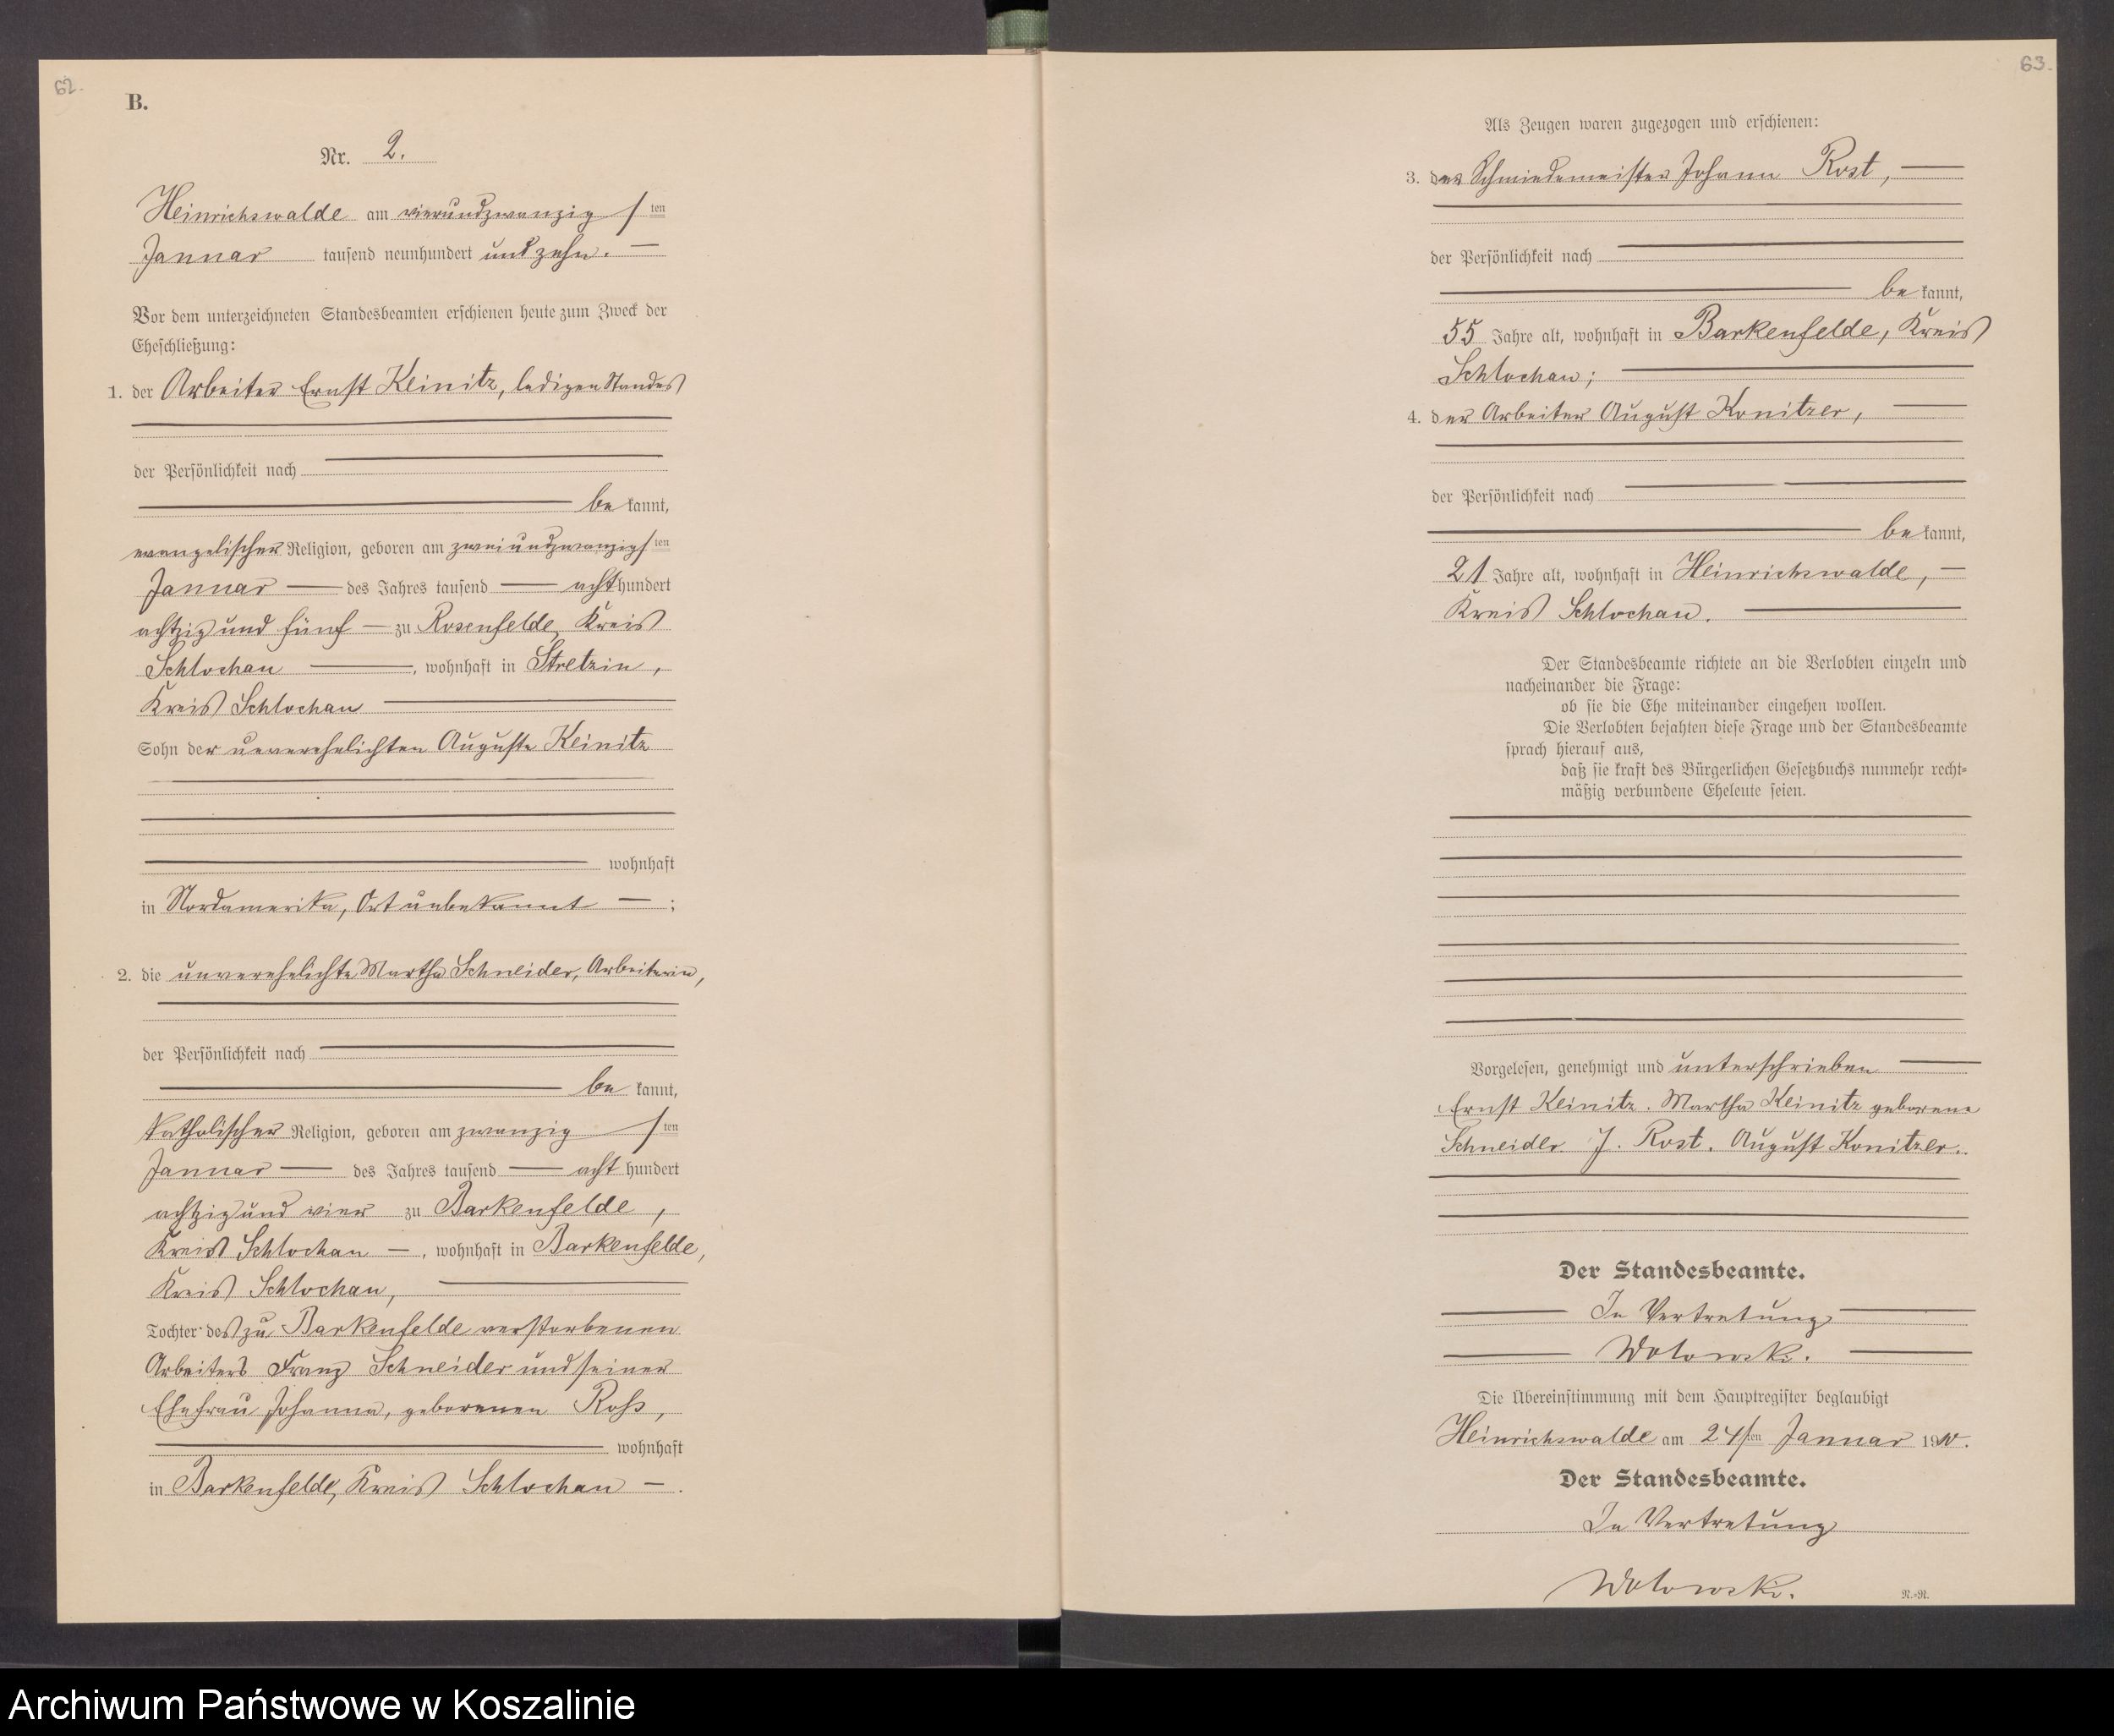 62.
B.
Nr. 2.
Heinrichswalde am vierundzwanzigsten
Januar tausend neunhundert und zehn. —
Vor dem unterzeichneten Standesbeamten erschienen heute zum Zweck der
Eheschließung:
1. der Arbeiter Ernst Keinitz, ledigen Standes
der Persönlichkeit nach
be kannt,
evangelischer Religion, geboren am zweiundzwanzigsten
Januar — des Jahres tausend — acht hundert
achtzig und fünf — zu Rosenfelde, Kreis
Schlochau —, wohnhaft in Stretzin,
Kreis Schlochau
Sohn der unverehelichten Auguste Keinitz
wohnhaft
in Nordamerika, Ort unbekannt — ;
2. die unverehelichte Martha Schneider, Arbeiterin,
der Persönlichkeit nach
be kannt,
katholischer Religion, geboren am zwanzigsten
Januar — des Jahres tausend — acht hundert
achtzig und vier zu Barkenfelde,
Kreis Schlochau —, wohnhaft in Barkenfelde,
Kreis Schlochau,
Tochter des zu Barkenfelde verstorbenen
Arbeiters Franz Schneider und seiner
Ehefrau Johanna, geborenen Roß,
wohnhaft
in Barkenfelde, Kreis Schlochau — .
63.
Als Zeugen waren zugezogen und erschienen:
3. der Schmiedemeister Johann Rost, —
der Persönlichkeit nach
be kannt,
55 Jahre alt, wohnhaft in Barkenfelde, Kreis
Schlochau;
4. der Arbeiter August Konitzer, —
der Persönlichkeit nach
be kannt,
21 Jahre alt, wohnhaft in Heinrichswalde, —
Kreis Schlochau.
Der Standesbeamte richtete an die Verlobten einzeln und
nacheinander die Frage:
ob sie die Ehe miteinander eingehen wollen.
Die Verlobten bejahten diese Frage und der Standesbeamte
sprach hierauf aus,
daß sie kraft des Bürgerlichen Gesetzbuchs nunmehr recht-
mäßig verbundene Eheleute seien.
Vorgelesen, genehmigt und unterschrieben
Ernst Keinitz. Martha Keinitz geborene
Schneider. J. Rost. August Konitzer.
Der Standesbeamte.
In Vertretung
Wolowski.
Die Übereinstimmung mit dem Hauptregister beglaubigt
Heinrichswalde am 24sten Januar 1910.
Der Standesbeamte.
In Vertretung
Wolowski.
N.-N.
Archiwum Państwowe w Koszalinie